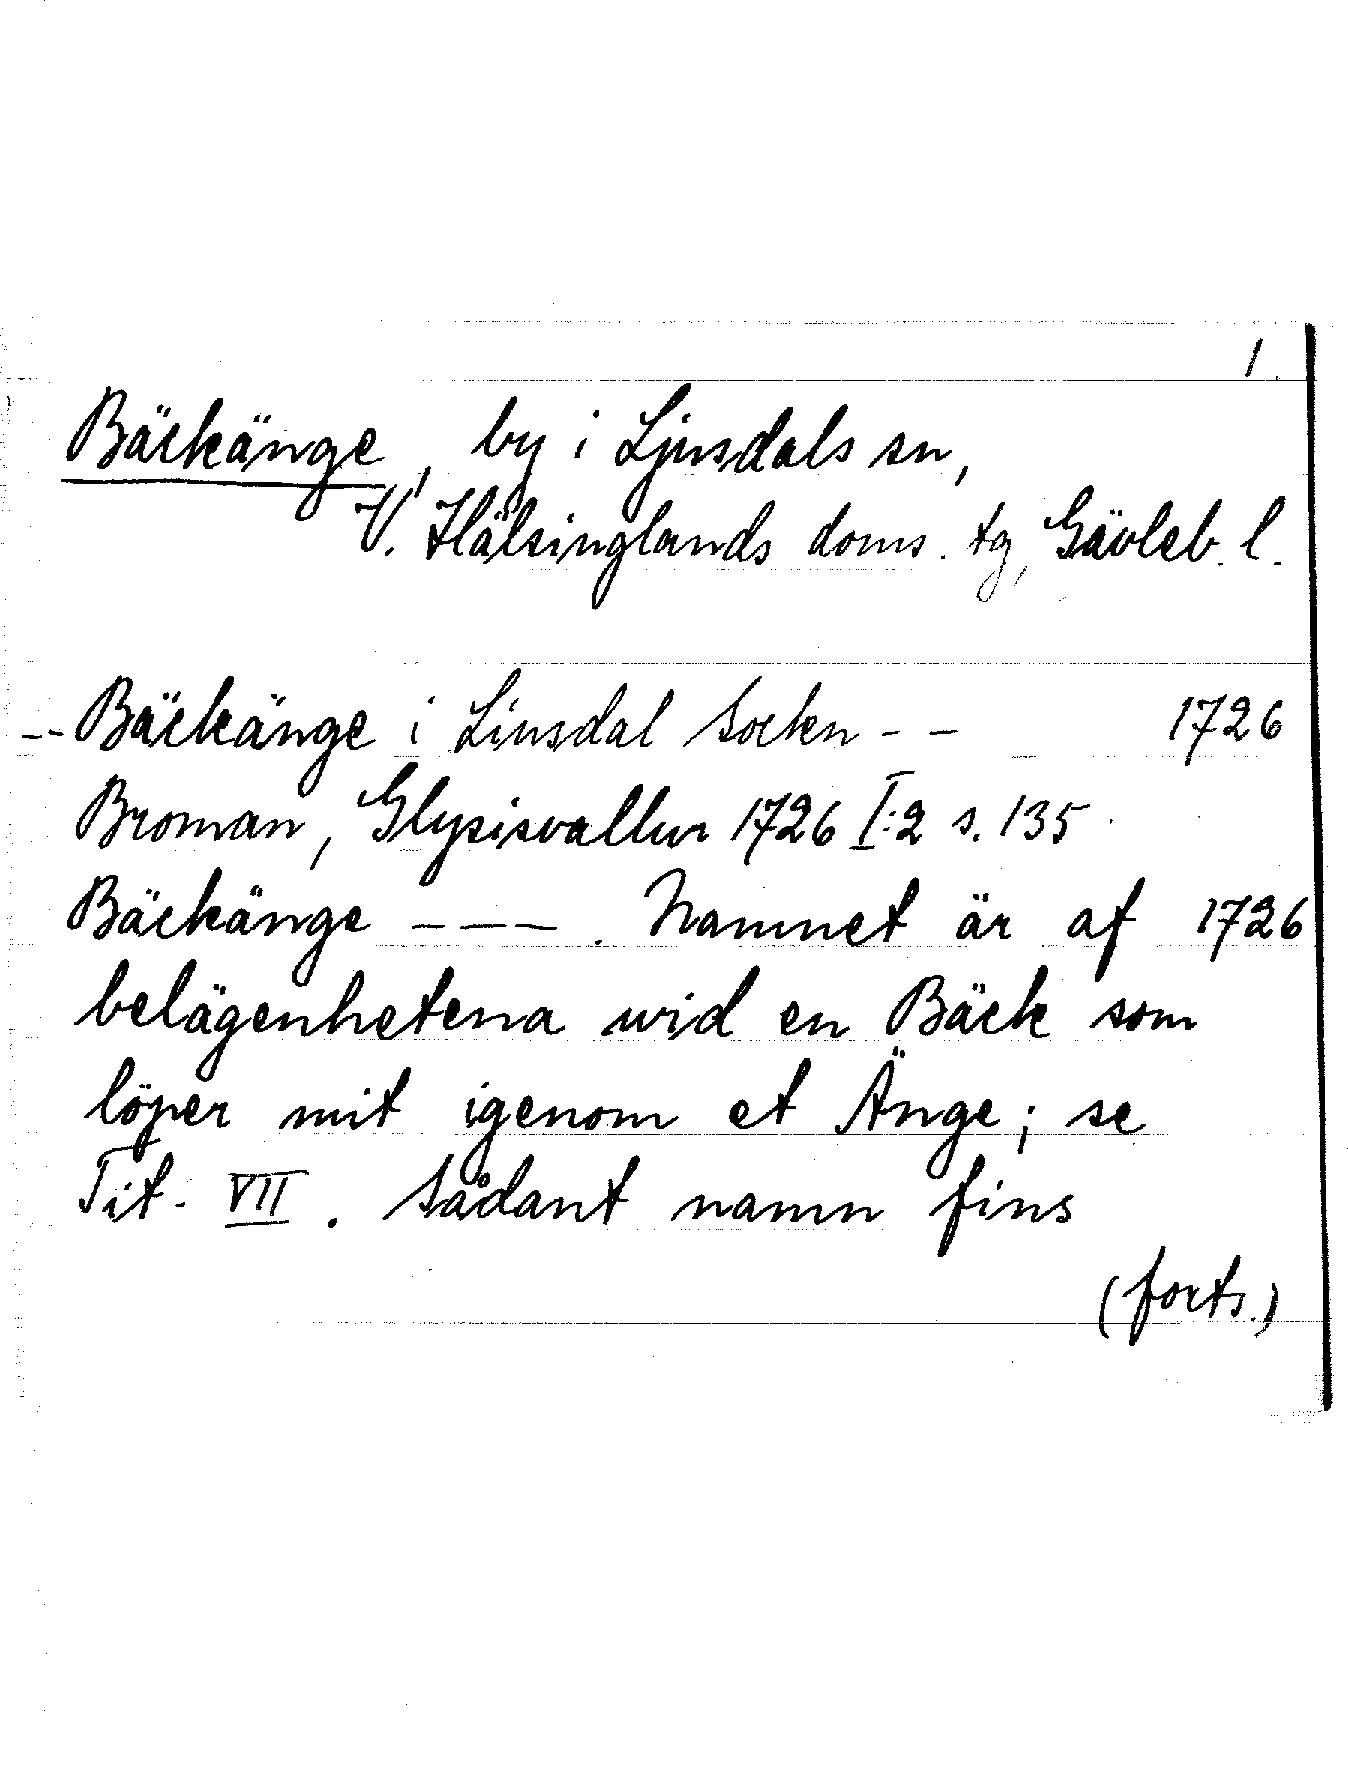 1.
Bäckänge, by i Ljusdals sn,
V. Hälsinglands doms. tg, Gävleb. l.
-- Bäckänge i Liusdal Sockn - - 1726
Broman, Glysisvallur 1726 I:2 s. 135
Bäckänge ---. Namnet är af 1726
belägenhetena wid en Bäck som
löper mit igenom et Änge; se
Tit. VII. Sådant namn fins
(forts.)